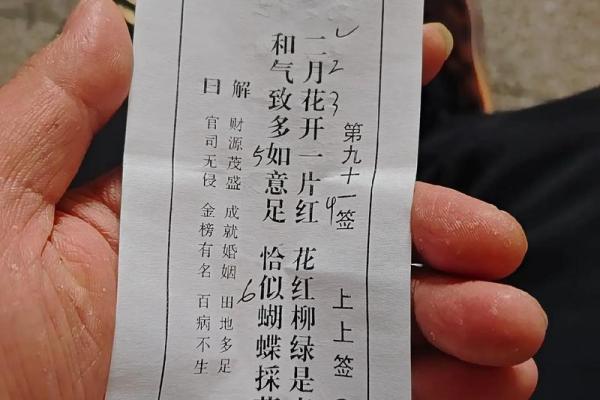 第九十一签 上上签
二月花开一片红 花红柳绿是
和气致多如意足 恰似蝴蝶採
解曰
财源茂盛 成就婚姻 田地多足
官司无侵 金榜有名 百病不生
2
3
4
5
6